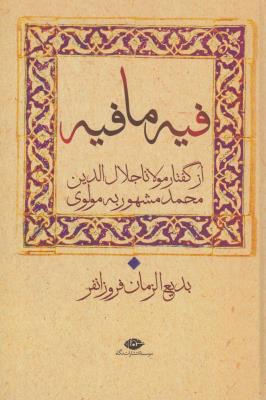 فیه ما فیه
از گفتار مولانا جلال‌الدین
محمد مشهور به مولوی
بدیع‌الزمان فروزانفر
موسسه انتشارات نگاه